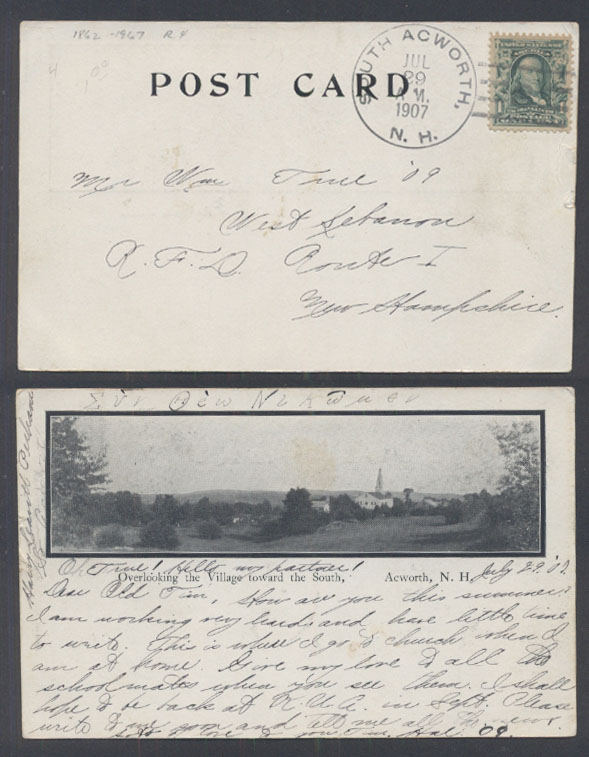 1862-1967 R.4
POST CARD
SOUTH ACWORTH,
JUL
29
A.M.
1907
N. H.
Mr Wm True '09
West Lebanon
R. F. D. Route I
New Hampshire.
Σὺν Θεῷ Νικῶμεν
Oh True! Hello my partner!
Overlooking the Village toward the South, Acworth, N. H.
July 29 '07.
Dear Old Tim, How are you this summer?
I am working very hard and have little time
to write. This is where I go to church when I
am at home. Give my love to all the
schoolmates when you see them. I shall
hope to be back at K. U. A. in Sept. Please
write to me soon and tell me all the news.
love to you Tim, Hal '09.